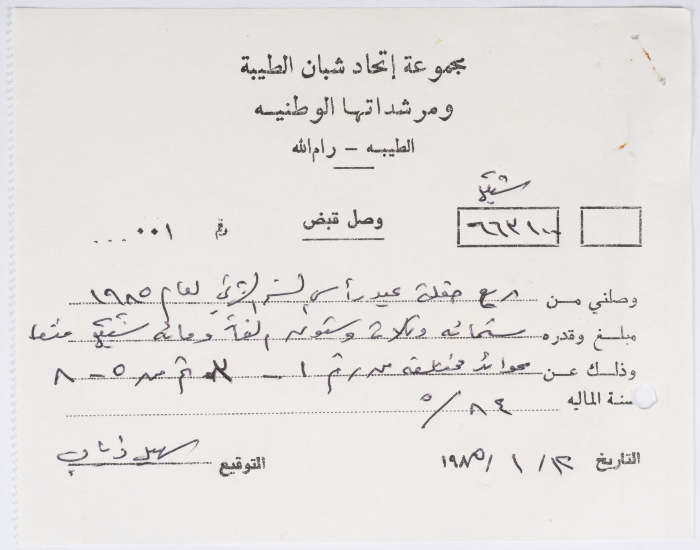 مجموعة إتحاد شبان الطيبة
ومرشداتها الوطنيه
الطيبه - رام الله
شيقل
٦٦٣١٠٠
وصل قبض
رقم ٠٠١
وصلني من ريع حفلة عيد رأس السنة لعام ١٩٨٥
مبلغ وقدره ستمائه وثلاث وستون الفاً ومائه شيقل فقط
وذلك عن من رقم ١ - ٣ ثم من ٥ - ٨
سنة الماليه ٨٤ / ٥
التاريخ ١٢ / ١ / ١٩٨٥
التوقيع سهيل